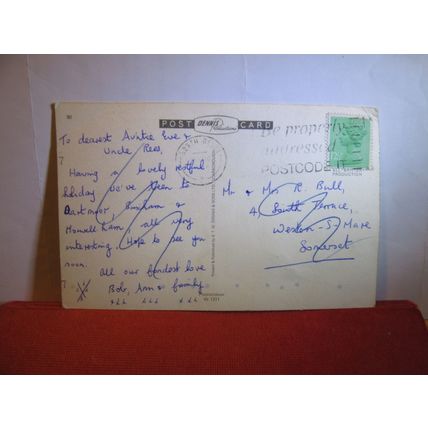 POST DENNIS Productions CARD
Be properly
addressed
POSTCODE IT
To dearest Auntie Eve &
Uncle Rees,
Having a lovely restful
holiday we've been to
Dartmoor, &
Ham, all very
interesting. Hope to see you
soon.
All our fondest love
Bob, Ann & family.
Mr & Mrs R. Bull,
4, South Terrace,
Weston-S-Mare
Somerset